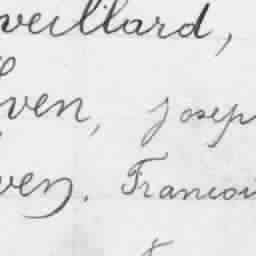 veillard,
ven, Josep
ven. Francoi